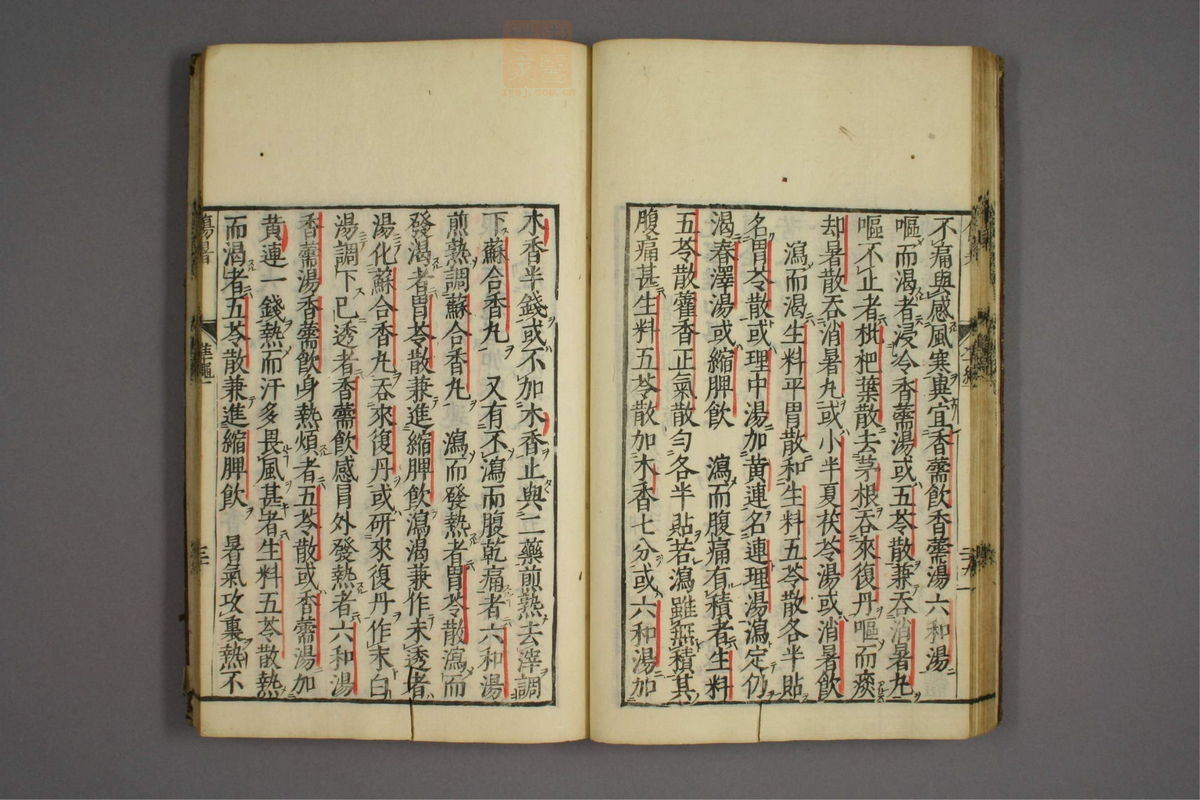 不痛與感風寒與宜香薷飲香薷湯六和湯
嘔而渴者浸冷香薷湯或五苓散兼吞消暑丸
嘔不止者枇杷葉散去茅根吞來復丹嘔而痰
却暑散吞消暑丸或小半夏茯苓湯或消暑飲
瀉而渴生料平胃散和生料五苓散各半貼
名胃苓散或理中湯加黄連名連理湯瀉定仍
渴春澤湯或縮脾飲　瀉而腹痛有積者生料
五苓散藿香正氣散勻各半貼若瀉雖無積其
腹痛甚生料五苓散加木香七分或六和湯加
木香半錢或不加木香止與二藥煎熟去滓調
下蘇合香丸　又有不瀉而腹乾痛者六和湯
煎熟調蘇合香丸　瀉而發熱者胃苓散瀉而
發渴者胃苓散兼進縮脾飲瀉渴兼作未透者
湯化蘇合香丸吞來復丹或研來復丹作末白
湯調下已透者香薷飲感冒外發熱者六和湯
香薷湯香薷飲身熱煩者五苓散或香薷湯加
黄連一錢熱而汗多畏風甚者生料五苓散熱
而渴者五苓散兼進縮脾飲　暑氣攻裏熱不
傷暑